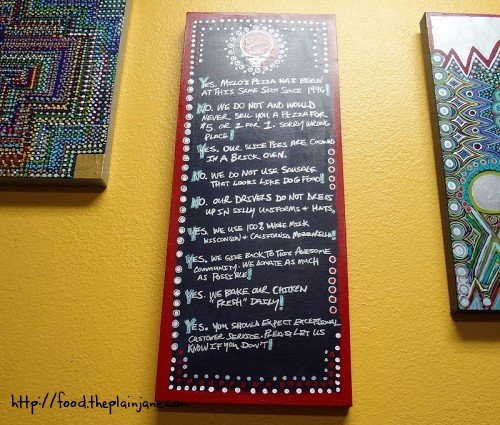 Yes. Milo's Pizza has been
at this same spot since 1996!
No. We do not and would
never sell you a pizza for
$5, or 2 for 1. Sorry wrong
place!
Yes. Our slice pies are cooked
in a brick oven.
No. We do not use sausage
that looks like dog food!
No. Our drivers do not dress
up in silly uniforms & hats.
Yes. We use 100% whole milk
Wisconsin & California Mozzarella!
Yes. We give back to this awesome
community. We donate as much
as possible!
Yes. We bake our chicken
"fresh" daily!
Yes. You should expect exceptional
customer service. Please let us
know if you don't!
http://food.theplainjane.com